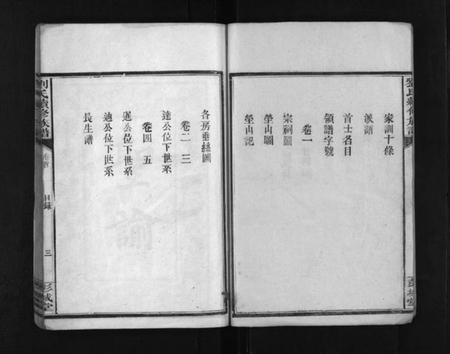 家訓十條
派語
首士名目
領譜字號
卷一
宗祠圖
塋山圖
塋山記
各房垂絲圖
卷二 三
達公位下世系
卷四 五
暹公位下世系
適公位下世系
長生譜
劉氏續修族譜
卷首
目錄
三
彭城堂